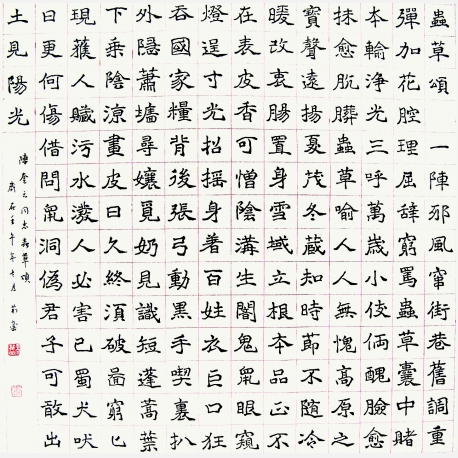 蟲草頌 一陣邪風窜街巷舊調重
彈加花腔理屈辭窮罵蟲草囊中賭
本輪浄光三呼萬歲小伎俩醜臉愈
抹愈肮髒蟲草喻人人無愧高原之
寶聲遠揚夏茂冬藏知時節不随冷
暖改衷腸置身雪域立根本品正不
在表皮香可憎陰溝生闇鬼鼠眼窺
燈逞寸光招摇身著百姓衣巨口狂
吞國家糧背後張弓動黑手喫裏扒
外隱蕭墻尋孃覓奶見識短蓬蒿葉
下乗陰涼畫皮日久終須破啚窮匕
現獲人贓污水潑人必害己蜀犬吠
日更何傷借問鼠洞偽君子可敢出
土見陽光
陳奎元同志蟲草頌
歲在壬午年十月